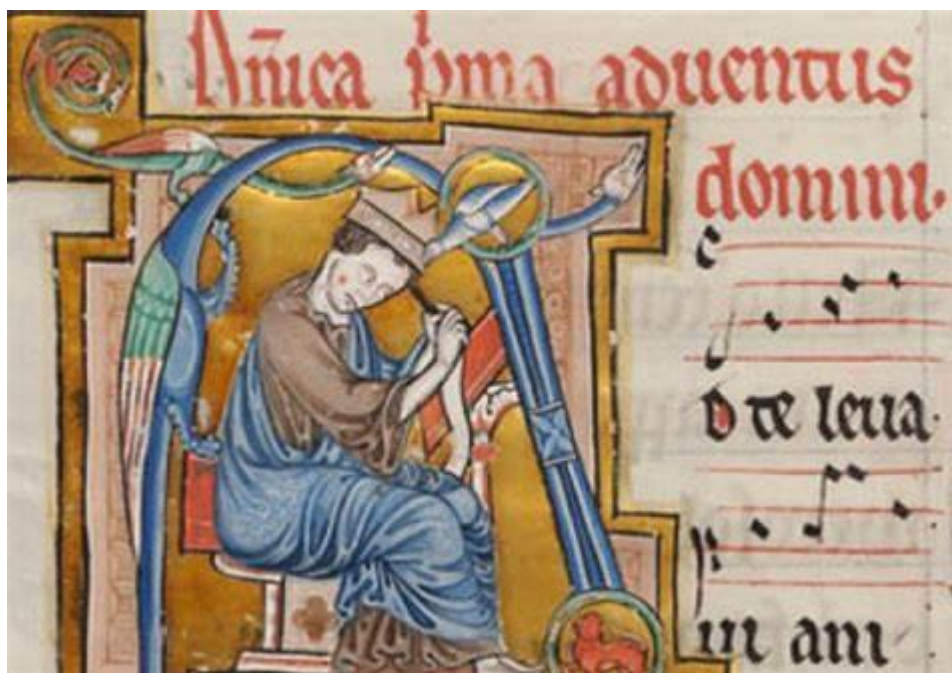 Dñica pͥma aduentus
domini.
AD te leua
ui ani